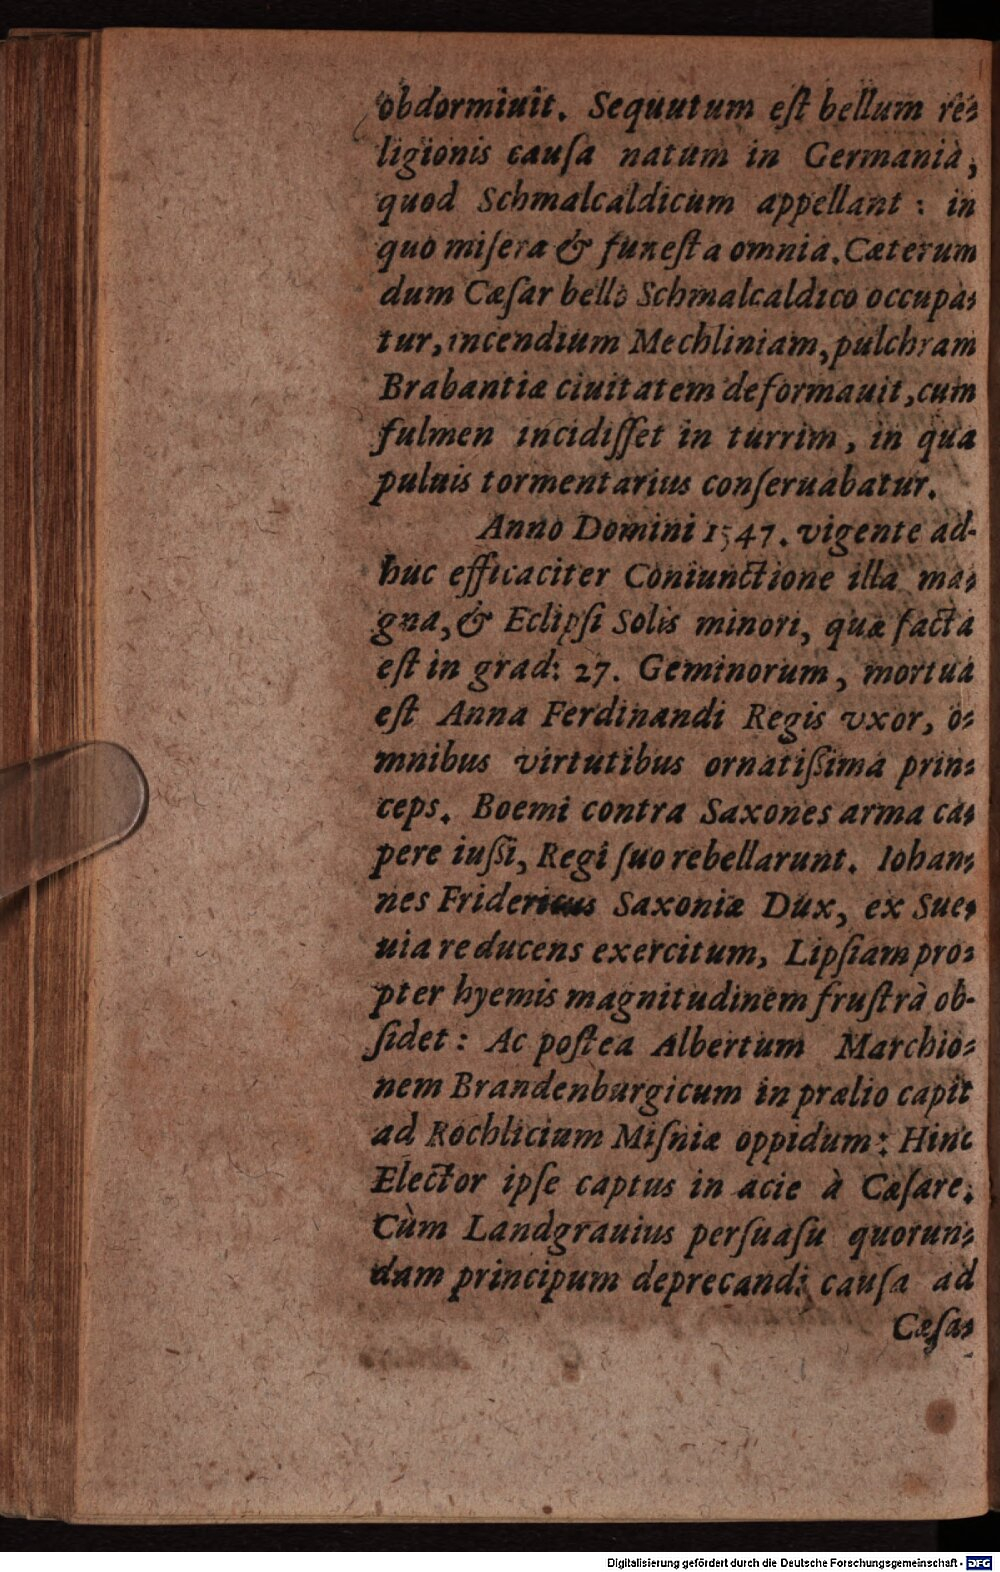 obdormiuit. Sequutum eſt bellum re⸗
ligionis cauſa natum in Germania,
quod Schmalcaldicum appellant : in
quo miſera & funeſta omnia. Cæterum
dum Cæſar bello Schmalcaldico occupa⸗
tur, incendium Mechliniam, pulchram
Brabantiæ ciuitatem deformauit, cum
fulmen incidiſſet in turrim, in qua
puluis tormentarius conſeruabatur.
Anno Domini 1547. vigente ad-
huc efficaciter Coniunctione illa ma⸗
gna, & Eclipſi Solis minori, quæ facta
eſt in grad: 27. Geminorum, mortua
eſt Anna Ferdinandi Regis vxor, o⸗
mnibus virtutibus ornatiſsima prin⸗
ceps. Boemi contra Saxones arma ca⸗
pere iuſsi, Regi ſuo rebellarunt. Iohan⸗
nes Fridericus Saxoniæ Dux, ex Sue⸗
uia reducens exercitum, Lipſiam pro⸗
pter hyemis magnitudinem fruſtrà ob-
ſidet : Ac poſtea Albertum Marchio⸗
nem Brandenburgicum in prælio capit
ad Rochlicium Miſniæ oppidum : Hinc
Elector ipſe captus in acie à Cæſare.
Cùm Landgrauius perſuaſu quorun⸗
dam principum deprecandi cauſa ad
Cæſa⸗
Digitalisierung gefördert durch die Deutsche Forschungsgemeinschaft - DFG